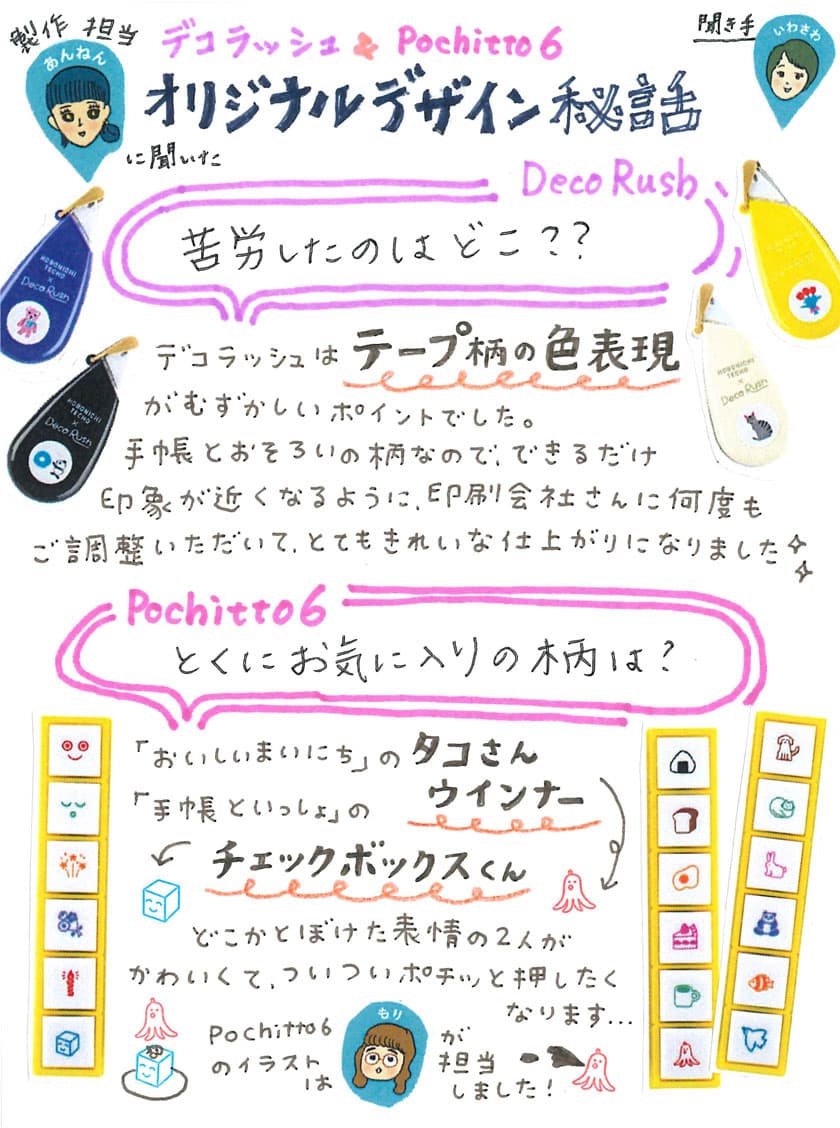 製作 担当
あんねん
に聞いた
デコラッシュ & Pochitto6
オリジナルデザイン秘話
聞き手
いわさわ
Deco Rush
苦労したのはどこ??
HOBONICHI
TECHO
×
Deco Rush
HOBONICHI
TECHO
×
Deco Rush
HOBONICHI
TECHO
×
Deco Rush
Deco Rush
デコラッシュは テープ柄の色表現
がむずかしいポイントでした。
手帳とおそろいの柄なので、できるだけ
印象が近くなるように、印刷会社さんに何度も
ご調整いただいて、とてもきれいな仕上がりになりました
Pochitto6
とくにお気に入りの柄は?
「おいしいまいにち」の タコさん
ウインナー
「手帳といっしょ」の
チェックボックスくん
どこかとぼけた表情の2人が
かわいくて、ついついポチッと押したく
なります...
Pochitto6
のイラスト
は
もり
が
担当
しました!